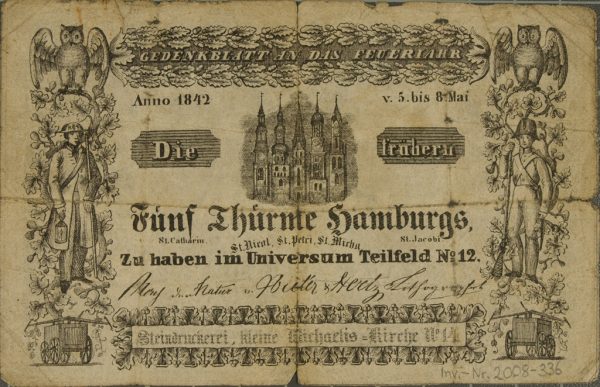 GEDENKBLATT AN DAS FEUERJAHR
Anno 1842 v. 5. bis 8 Mai
Die frühern
Fünf Thürme Hamburgs,
St. Catharin. St. Nicol. St. Petri, St. Micha. St. Jacobi
Zu haben im Universum Teilfeld No 12.
der Natur v. Lithographirt
Steindruckerei, kleine Michaelis=Kirche No 14
Inv.-Nr. 2008-336